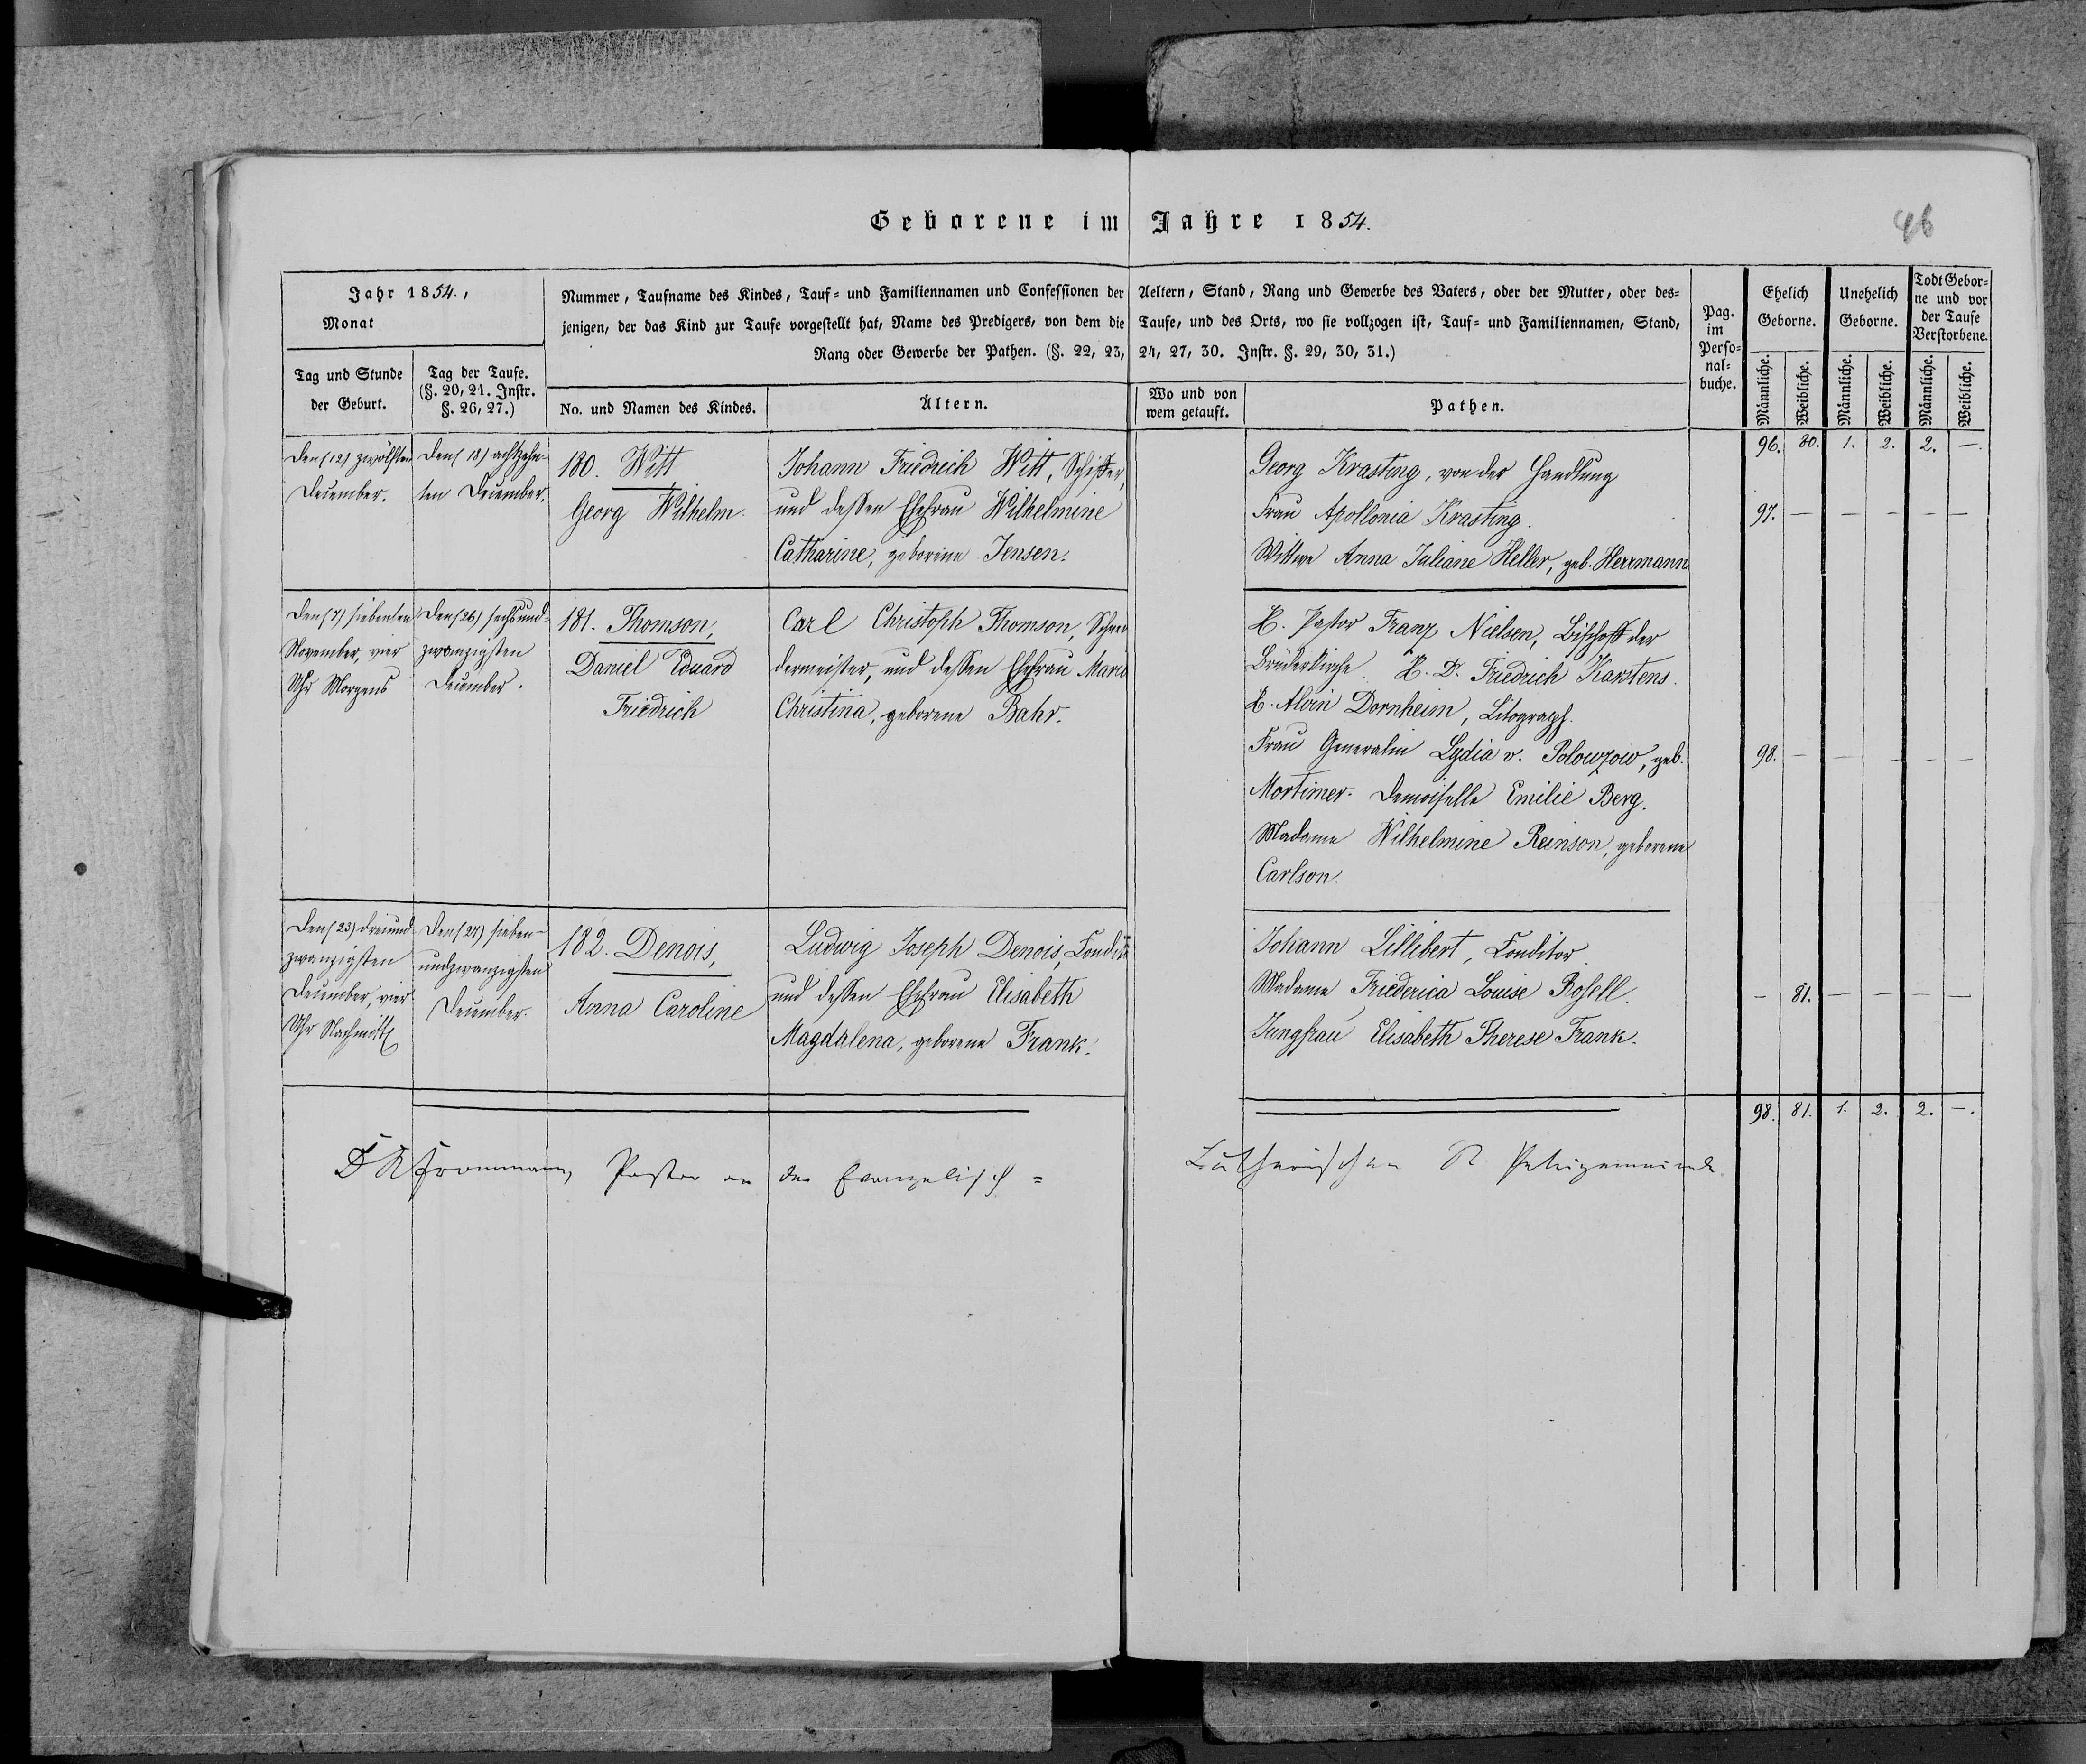 Geborene im Jahre 1854.
46
Jahr 1854.,
Monat
Tag und Stunde
der Geburt.
Tag der Taufe.
(§. 20, 21. Instr.
§. 26, 27.)
Nummer, Taufname des Kindes, Tauf- und Familiennamen und Confessionen der Aeltern, Stand, Rang und Gewerbe des Vaters, oder der Mutter, oder des-
jenigen, der das Kind zur Taufe vorgestellt hat, Name des Predigers, von dem die Taufe, und des Orts, wo sie vollzogen ist, Tauf- und Familiennamen, Stand,
Rang oder Gewerbe der Pathen. (§. 22, 23, 24, 27, 30. Instr. §. 29, 30, 31.)
No. und Namen des Kindes.
Ältern.
Wo und von
wem getauft.
Pathen.
Pag.
im
Perso-
nal-
buche.
Ehelich
Geborne.
Unehelich
Geborne.
Todt Gebor-
ne und vor
der Taufe
Verstorbene.
Männliche.
Weibliche.
Männliche.
Weibliche.
Männliche.
Weibliche.
96. 80. 1. 2. 2. —.
Den (12) zwölften
December.
Den (18) achtzehn-
ten December.
180. Witt,
Georg Wilhelm.
Johann Friedrich Witt, Schiffer,
und dessen Ehefrau Wilhelmine
Catharine, geborene Jensen.
Georg Krasting, von der Handlung
Frau Apollonia Krasting.
Wittwe Anna Juliane Heller, geb. Herrmann
97. — — — — —
Den (7) siebenten
November, vier
Uhr Morgens
Den (26) sechsund-
zwanzigsten
December.
181. Thomson,
Daniel Eduard
Friedrich
Carl Christoph Thomson, Schnei
dermeister, und dessen Ehefrau Maria
Christina, geborene Bahr.
H. Pastor Franz Nielsen, Bischoff der
Brüderkirche. H. Dr. Friedrich Karstens.
H. Alvin Dornheim, Litograph.
Frau Generalin Lydia v. Polowzow, geb.
Mortimer. Demoiselle Emilie Berg.
Madame Wilhelmine Reinson, geborene
Carlson.
98. — — — — —
Den (23) dreiund
zwanzigsten
December, vier
Uhr Nachmitt
Den (27) sieben-
undzwanzigsten
December.
182. Denois,
Anna Caroline
Ludwig Joseph Denois, Conditor
und dessen Ehefrau Elisabeth
Magdalena, geborene Frank.
Johann Lillibert, Conditor.
Madame Friederica Louise Rosell.
Jungfrau Elisabeth Therese Frank.
— 81. — — — —
98. 81. 1. 2. 2. —.
Frommann, Pastor an der Evangelisch- Lutherischen St Petrigemeinde.